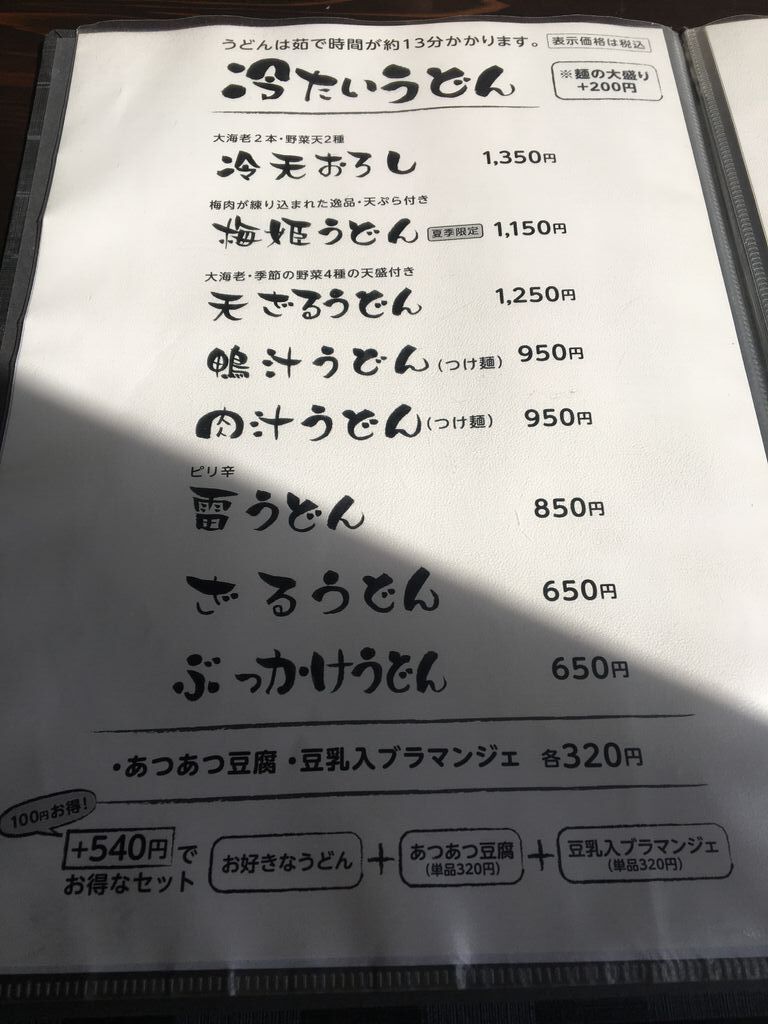 うどんは茹で時間が約13分かかります。 表示価格は税込
冷たいうどん
※麺の大盛り
+200円
大海老2本・野菜天2種
冷天おろし 1,350円
梅肉が練り込まれた逸品・天ぷら付き
梅姫うどん 夏季限定 1,150円
大海老・季節の野菜4種の天盛付き
天ざるうどん 1,250円
鴨汁うどん(つけ麺) 950円
肉汁うどん(つけ麺) 950円
ピリ辛
雷うどん 850円
ざるうどん 650円
ぶっかけうどん 650円
・あつあつ豆腐・豆乳入ブラマンジェ 各320円
100円お得!
+540円で
お得なセット
お好きなうどん + あつあつ豆腐 (単品320円) + 豆乳入ブラマンジェ (単品320円)